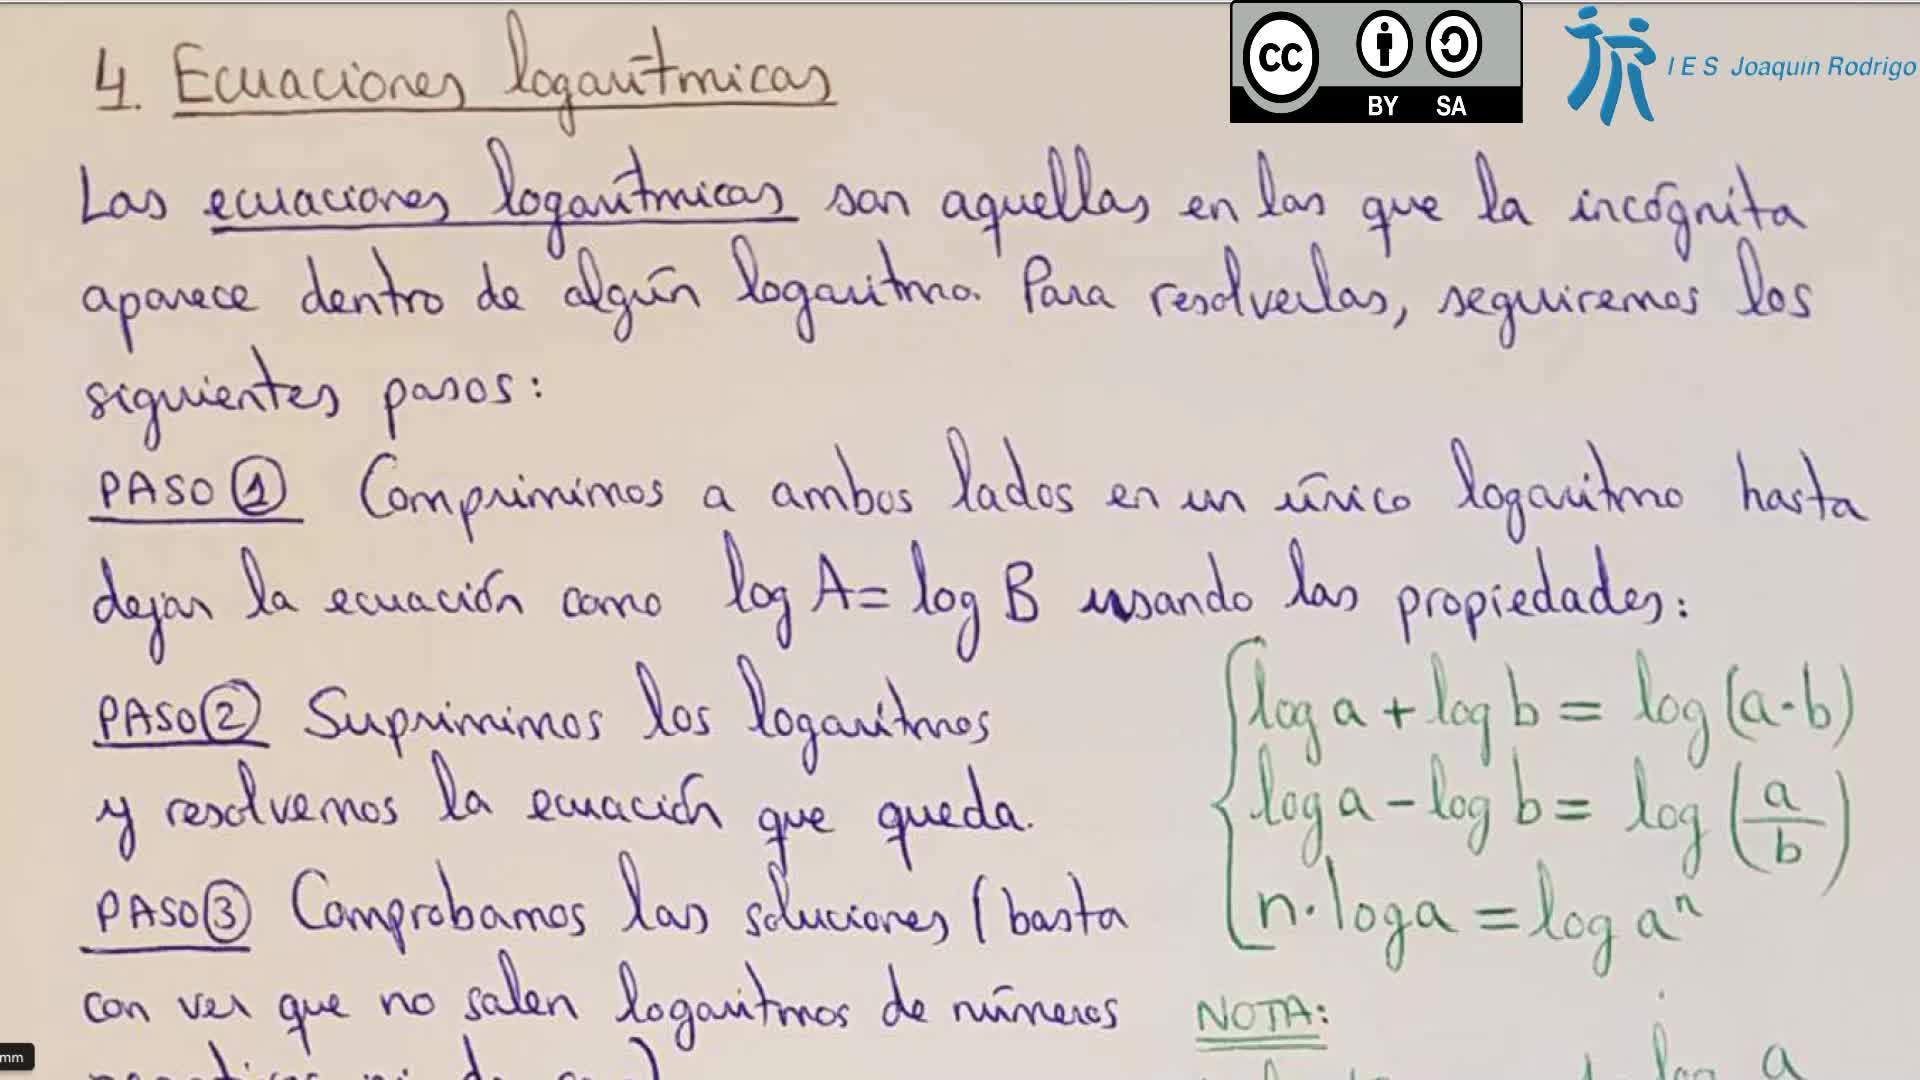 4. Ecuaciones logarítmicas
CC BY SA
IES Joaquín Rodrigo
Las ecuaciones logarítmicas son aquellas en las que la incógnita
aparece dentro de algún logaritmo. Para resolverlas, seguiremos los
siguientes pasos:
PASO ① Comprimimos a ambos lados en un único logaritmo hasta
dejar la ecuación como log A = log B usando las propiedades:
PASO ② Suprimimos los logaritmos
y resolvemos la ecuación que queda.
PASO ③ Comprobamos las soluciones (basta
con ver que no salen logaritmos de números
log a + log b = log (a·b)
log a - log b = log (a/b)
n·log a = log aⁿ
NOTA:
mm